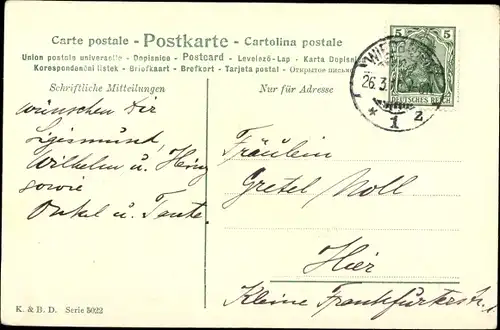 Carte postale - Postkarte - Cartolina postale
Union postale universelle - Dopisnice - Postcard - Levelező-Lap - Karta Dopisnica
Korespondanční lístek - Briefkaart - Brefkort - Tarjeta postal - Открытое письмо
Schriftliche Mitteilungen
Nur für Adresse
5 5
DEUTSCHES REICH
26.3.
* 1 z
wünschen Dir
Sigismund,
Wilhelm u. Heinz
sowie
Onkel u. Tante.
Fräulein
Gretel Noll
Hier
Kleine Frankfurterstr.
K. & B. D. Serie 5022